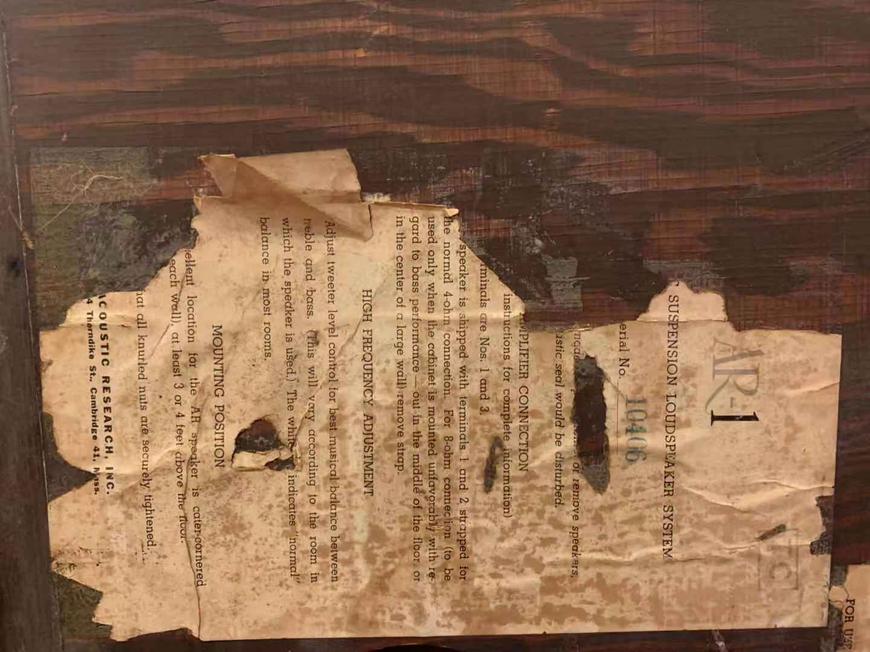 AR-1
SUSPENSION LOUDSPEAKER SYSTEM
erial No. 10406
or remove speakers,
stic seal would be disturbed.
MPLIFIER CONNECTION
instructions for complete information)
rminals are Nos. 1 and 3.
speaker is shipped with terminals 1 and 2 strapped for
he normal 4-ohm connection. For 8-ohm connection (to be
used only when the cabinet is mounted unfavorably with re-
gard to bass performance — out in the middle of the floor or
in the center of a large wall) remove strap.
HIGH FREQUENCY ADJUSTMENT
Adjust tweeter level control for best musical balance between
treble and bass. (This will vary according to the room in
which the speaker is used.) The whit indicates "normal"
balance in most rooms.
MOUNTING POSITION
ellent location for the AR speaker is cater-cornered
each wall), at least 3 or 4 feet above the floor.
hat all knurled nuts are securely tightened.
ACOUSTIC RESEARCH, INC.
4 Thorndike St., Cambridge 41, Mass.
FOR USE